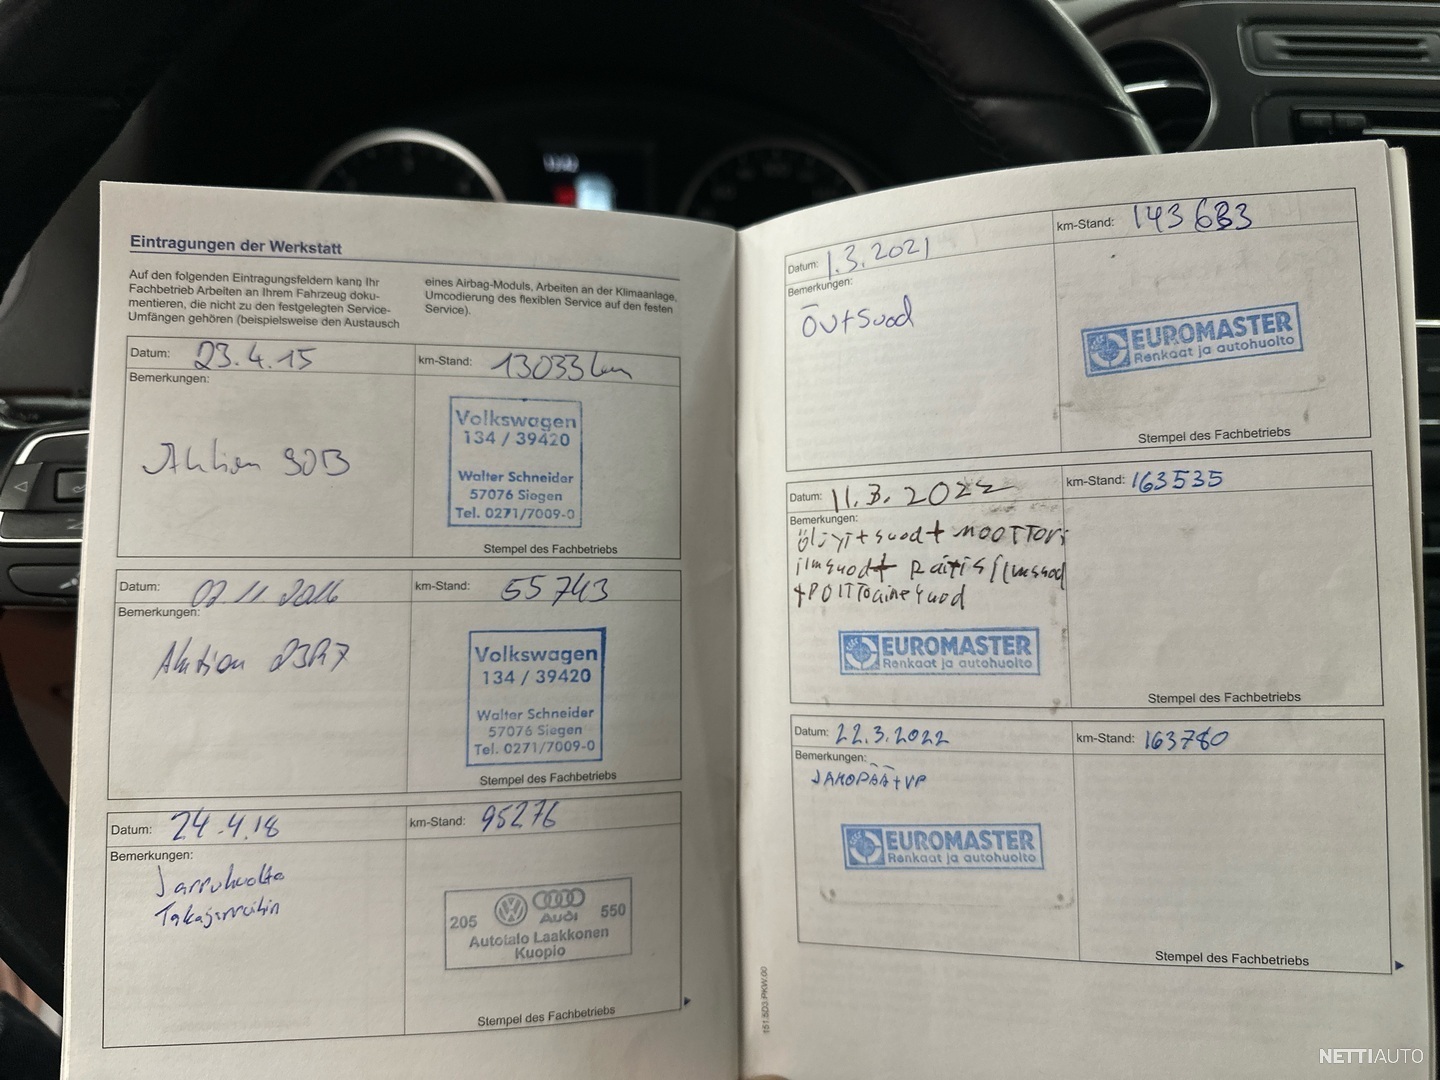 Eintragungen der Werkstatt
Auf den folgenden Eintragungsfeldern kann Ihr
Fachbetrieb Arbeiten an Ihrem Fahrzeug doku-
mentieren, die nicht zu den festgelegten Service-
Umfängen gehören (beispielsweise den Austausch
eines Airbag-Moduls, Arbeiten an der Klimaanlage,
Umcodierung des flexiblen Service auf den festen
Service).
Datum: 23.4.15
km-Stand: 13033 km
Bemerkungen:
Aktion
Volkswagen
134 / 39420
Walter Schneider
57076 Siegen
Tel. 0271/7009-0
Stempel des Fachbetriebs
Datum: 07 11 2016
km-Stand: 55743
Bemerkungen:
Aktion 23R7
Volkswagen
134 / 39420
Walter Schneider
57076 Siegen
Tel. 0271/7009-0
Stempel des Fachbetriebs
Datum: 24.4.18
km-Stand: 95276
Bemerkungen:
Jarruhuolto
Takajarruihin
205 Audi 550
Autotalo Laakkonen
Kuopio
Stempel des Fachbetriebs
Datum: 1.3.2021
km-Stand: 143683
Bemerkungen:
öv+suod
EUROMASTER
Renkaat ja autohuolto
Stempel des Fachbetriebs
Datum: 11.3.2022
km-Stand: 163535
Bemerkungen:
öljyt+suod+moottori
ilmsuod+ Raitisilmsuod
+POlTToainesuod
EUROMASTER
Renkaat ja autohuolto
Stempel des Fachbetriebs
Datum: 22.3.2022
km-Stand: 163780
Bemerkungen:
JAKOPÄÄ+VP
EUROMASTER
Renkaat ja autohuolto
Stempel des Fachbetriebs
151.5D3.PKW.00
NETTIAUTO